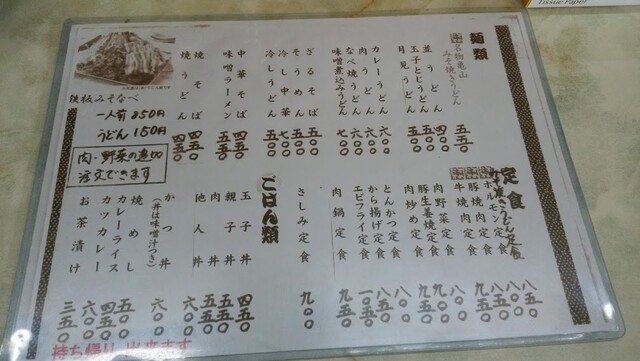 Tissue Paper
麺類
名物亀山
みそ焼きうどん 五五〇
並うどん 四五〇
玉子とじうどん 五〇〇
月見うどん 五〇〇
カレーうどん 六〇〇
肉うどん 六〇〇
なべ焼うどん 六〇〇
味噌煮込みうどん 七〇〇
ざるそば 五〇〇
そうめん 五〇〇
冷し中華 七〇〇
冷しうどん 五〇〇
中華そば 四五〇
味噌ラーメン 五五〇
焼そば 四五〇
焼うどん 四五〇
鉄板みそなべ
一人前 850円
うどん 150円
肉・野菜の追加
注文できます
定食
ホルモン定食 八五〇
豚焼肉定食 八五〇
牛焼肉定食 九五〇
肉野菜定食 八〇〇
豚生姜焼定食 九五〇
肉炒め定食 八〇〇
とんかつ定食 八五〇
から揚げ定食 八五〇
エビフライ定食 一〇五〇
肉鍋定食 九五〇
さしみ定食 九〇〇
ごはん類
玉子丼 四五〇
親子丼 五五〇
肉丼 五五〇
他人丼 六〇〇
かつ丼 六〇〇
(丼は味噌汁つき)
焼めし 五〇〇
カレーライス 四五〇
カツカレー 六〇〇
お茶漬け 三五〇
持ち帰り出来ます